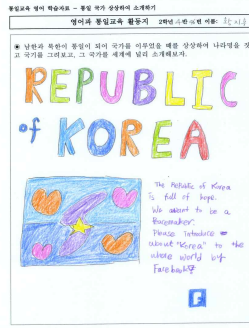 통일교육 영어 학습자료 - 통일 국가 상상하여 소개하기
영어과 통일교육 활동지 2학년 반 번 이름:
남한과 북한이 통일이 되어 국가를 이루었을 때를 상상하여 나라명을 짓
고 국기를 그려보고, 그 국가를 세계에 널리 소개해보자.
REPUBLIC
of KOREA
The Republic of Korea
Is full of hope.
We want to be a
Peacemaker.
Please Intoduce
about "Korea" to the
whole world by
Facebook
F